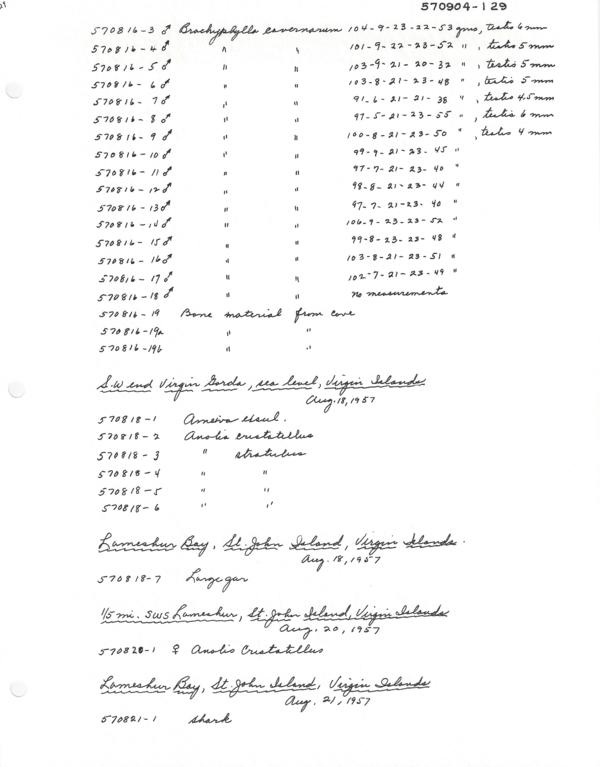 570904-129
570816-3 ♂ Brachyphylla cavernarum 104-9-23-22-53 gms, testis 6 mm
570816-4 ♂ " " 101-9-22-23-52 " , testis 5 mm
570816-5 ♂ " " 103-9-21-20-32 " , testis 5 mm
570816-6 ♂ " " 103-8-21-23-48 " , testis 5 mm
570816-7 ♂ " " 91-6-21-21-38 " , testis 4.5 mm
570816-8 ♂ " " 97-5-21-23-55 " , testis 6 mm
570816-9 ♂ " " 100-8-21-23-50 " , testis 4 mm
570816-10 ♂ " " 99-9-21-23-45 "
570816-11 ♂ " " 97-7-21-23-40 "
570816-12 ♂ " " 98-8-21-23-44 "
570816-13 ♂ " " 97-7-21-23-40 "
570816-14 ♂ " " 106-9-23-23-52 "
570816-15 ♂ " " 99-8-23-23-48 "
570816-16 ♂ " " 103-8-21-23-51 "
570816-17 ♂ " " 102-7-21-23-49 "
570816-18 ♂ " " no measurements
570816-19 Bone material from cave
570816-19a " "
570816-19b " "
S.W end Virgin Gorda, sea level, Virgin Islands
Aug. 18, 1957
570818-1 Ameiva exsul.
570818-2 Anolis cristatellus
570818-3 " stratulus
570818-4 " "
570818-5 " "
570818-6 " "
Lameshur Bay, St. John Island, Virgin Islands.
Aug. 18, 1957
570818-7 Large gar
1/5 mi. SWS Lameshur, St. John Island, Virgin Islands
Aug. 20, 1957
570820-1 ♀ Anolis Cristatellus
Lameshur Bay, St John Island, Virgin Islands
Aug. 21, 1957
570821-1 shark